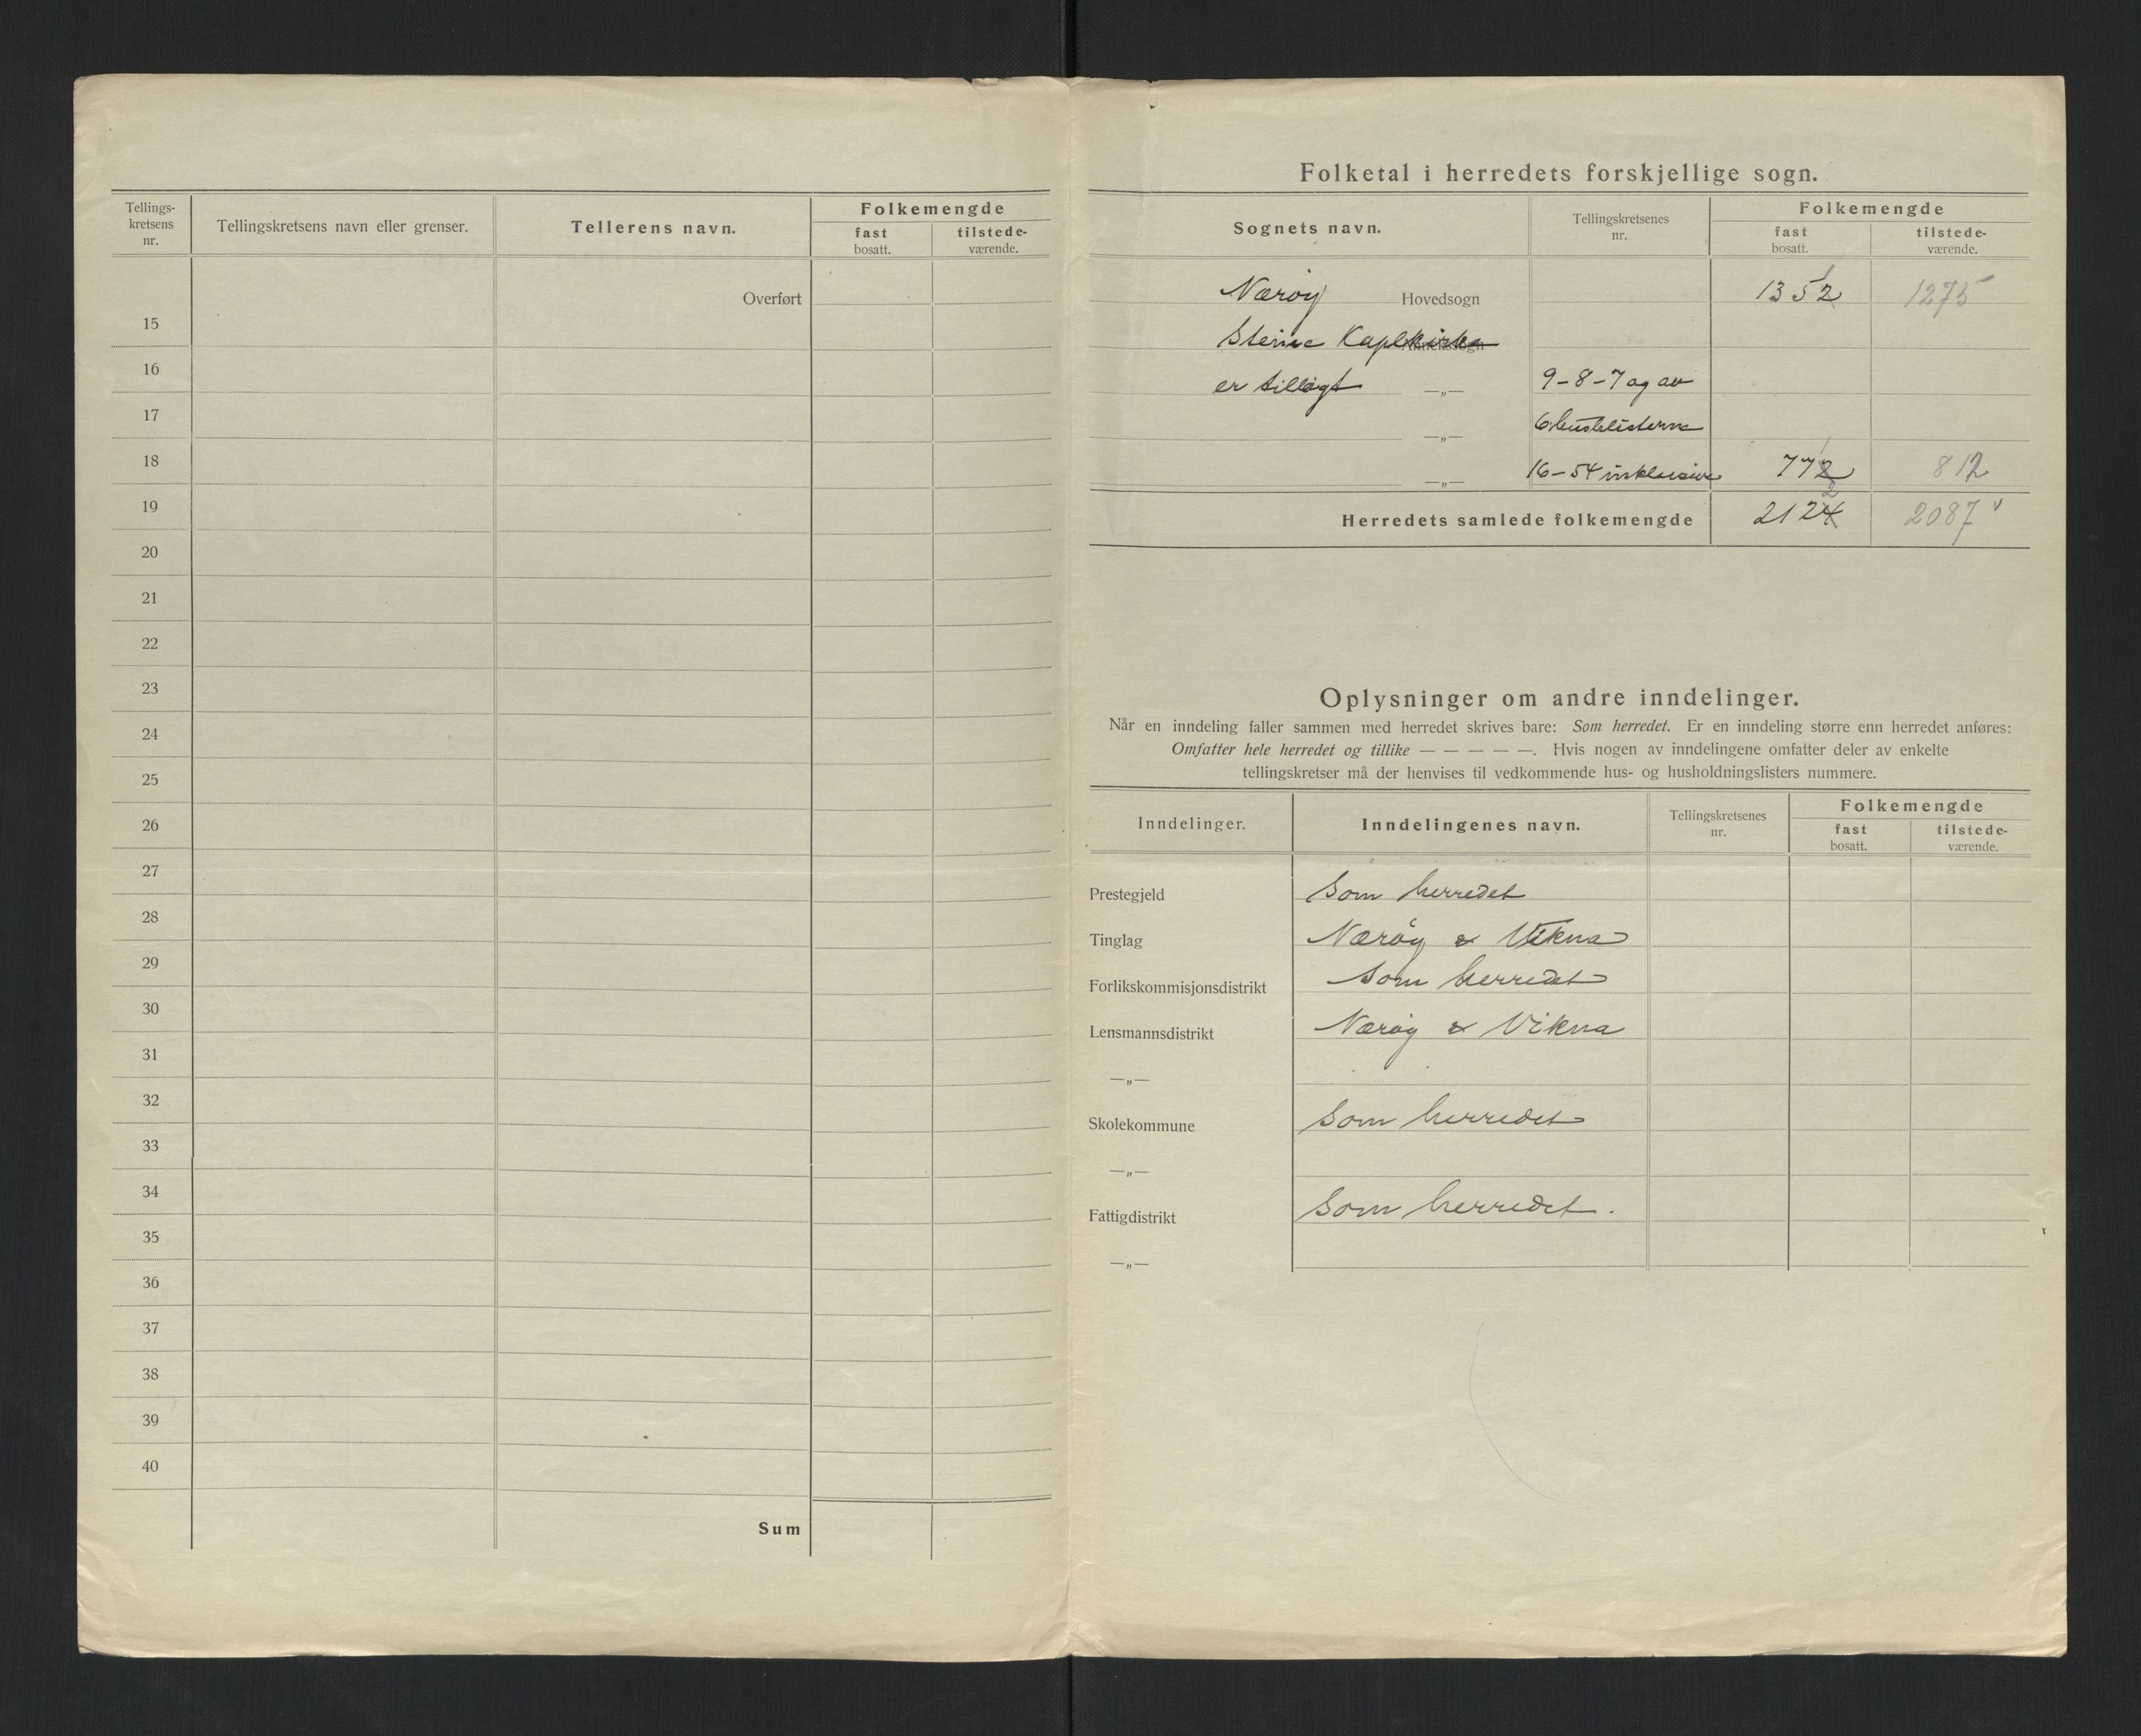 Tellings-
kretsens
nr.
Tellingskretsens navn eller grenser.
Tellerens navn.
Folkemengde
fast
bosatt.
tilstede-
værende.
Overført
15
16
17
18
19
20
21
22
23
24
25
26
27
28
29
30
31
32
33
34
35
36
37
38
39
40
Sum
Folketal i herredets forskjellige sogn.
Sognets navn.
Tellingskretsenes
nr.
Folkemengde
fast
bosatt.
tilstede-
værende.
Nærøy Hovedsogn 1352 1275
Steine Kapelkirke
er tillagt —„— 9-8-7 og av
—„— 6 huslisterne
—„— 16-54 inklusive 772 812
Herredets samlede folkemengde 2124 2087
Oplysninger om andre inndelinger.
Når en inndeling faller sammen med herredet skrives bare: Som herredet. Er en inndeling større enn herredet anføres:
Omfatter hele herredet og tillike — — — — —. Hvis nogen av inndelingene omfatter deler av enkelte
tellingskretser må der henvises til vedkommende hus- og husholdningslisters nummere.
Inndelinger.
Inndelingenes navn.
Tellingskretsenes
nr.
Folkemengde
fast
bosatt.
tilstede-
værende.
Prestegjeld Som herredet
Tinglag Nærøy & Vikna
Forlikskommisjonsdistrikt Som herredet
Lensmannsdistrikt Nærøy & Vikna
—„—
Skolekommune Som herredet
—„—
Fattigdistrikt Som herredet.
—„—